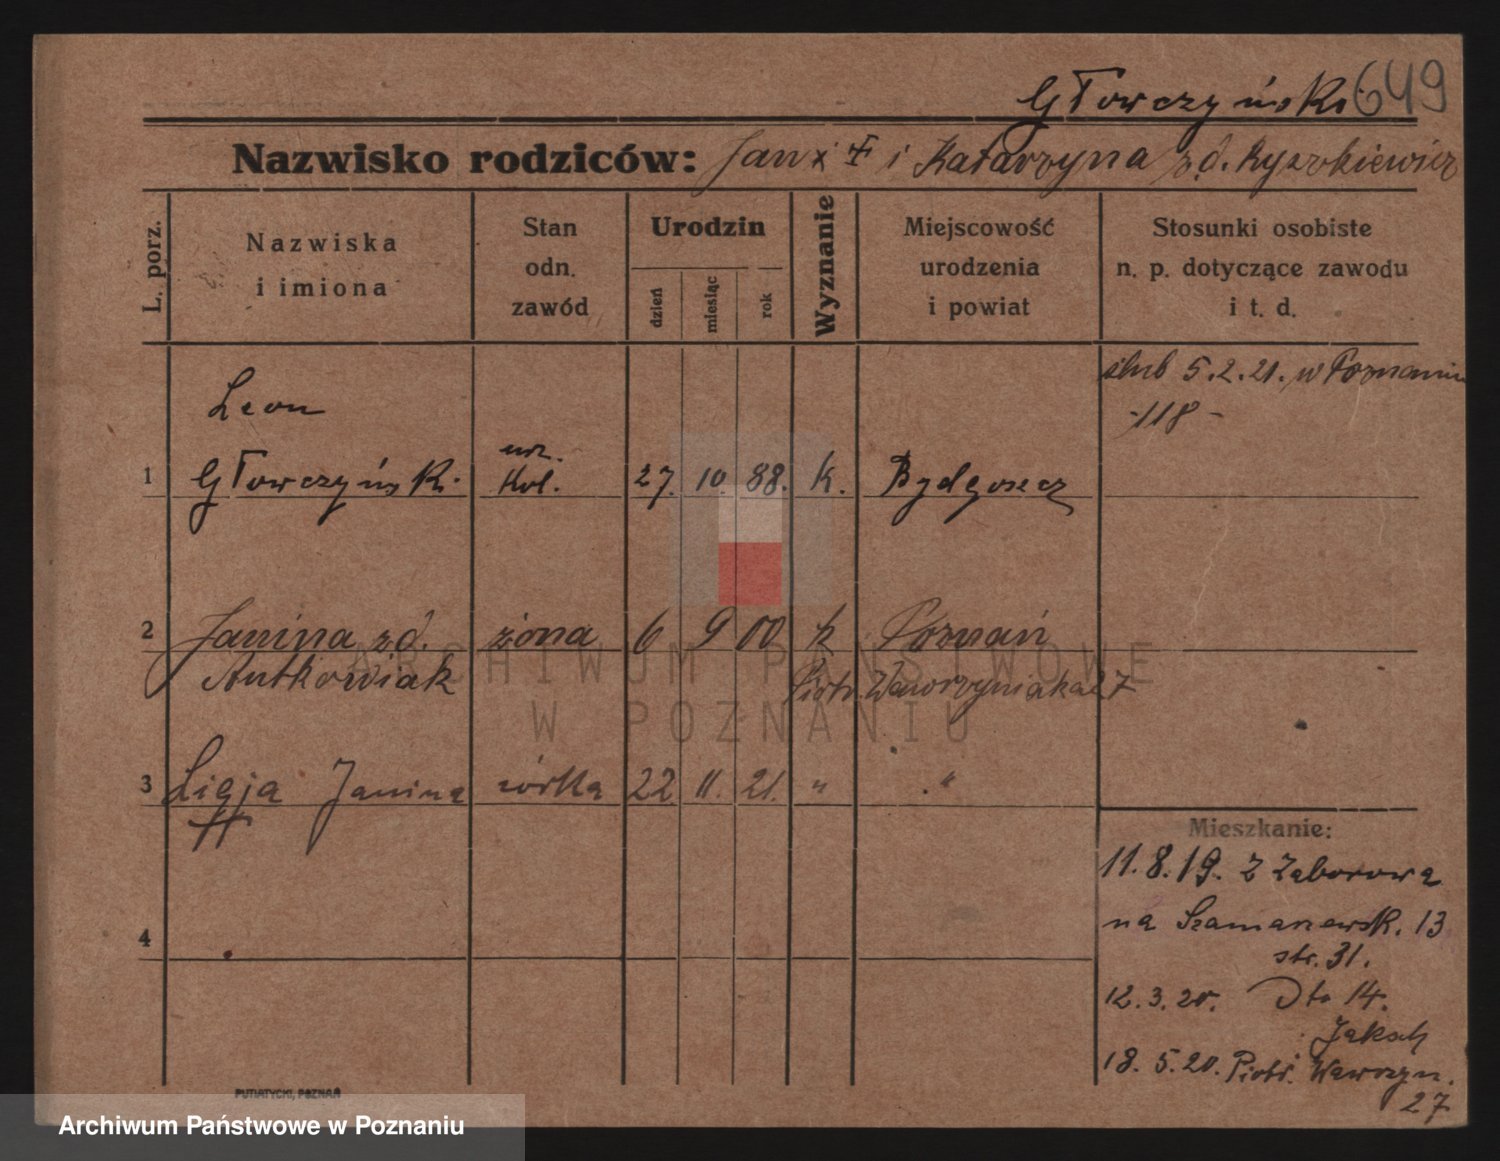 Głowczyński 649
Nazwisko rodziców: Jan i Katarzyna z.d. Ryszkiewicz
L. porz.
Nazwiska
i imiona
Stan
odn.
zawód
Urodzin
dzień
miesiąc
rok
Wyznanie
Miejscowość
urodzenia
i powiat
Stosunki osobiste
n. p. dotyczące zawodu
i t. d.
ślub 5.2.21. w Poznaniu
-118-
Leon
1 Głowczyński urz. kol. 27. 10. 88. k. Bydgoszcz
2 Janina zd. żona 6 9 00 k Poznań
Antkowiak Piotr. Wawrzyniaka 27
3 Ligja Janina córka 22 11. 21. " "
4
Mieszkanie:
11.8.19. z Zaborowa
na Szamarzewsk. 13
str. 31.
12.3.20. Dto 14.
Jaksch
18.5.20. Piotr. Wawrzyn.
27
PUTIATYCKI, POZNAŃ
ARCHIWUM PAŃSTWOWE
W POZNANIU
Archiwum Państwowe w Poznaniu